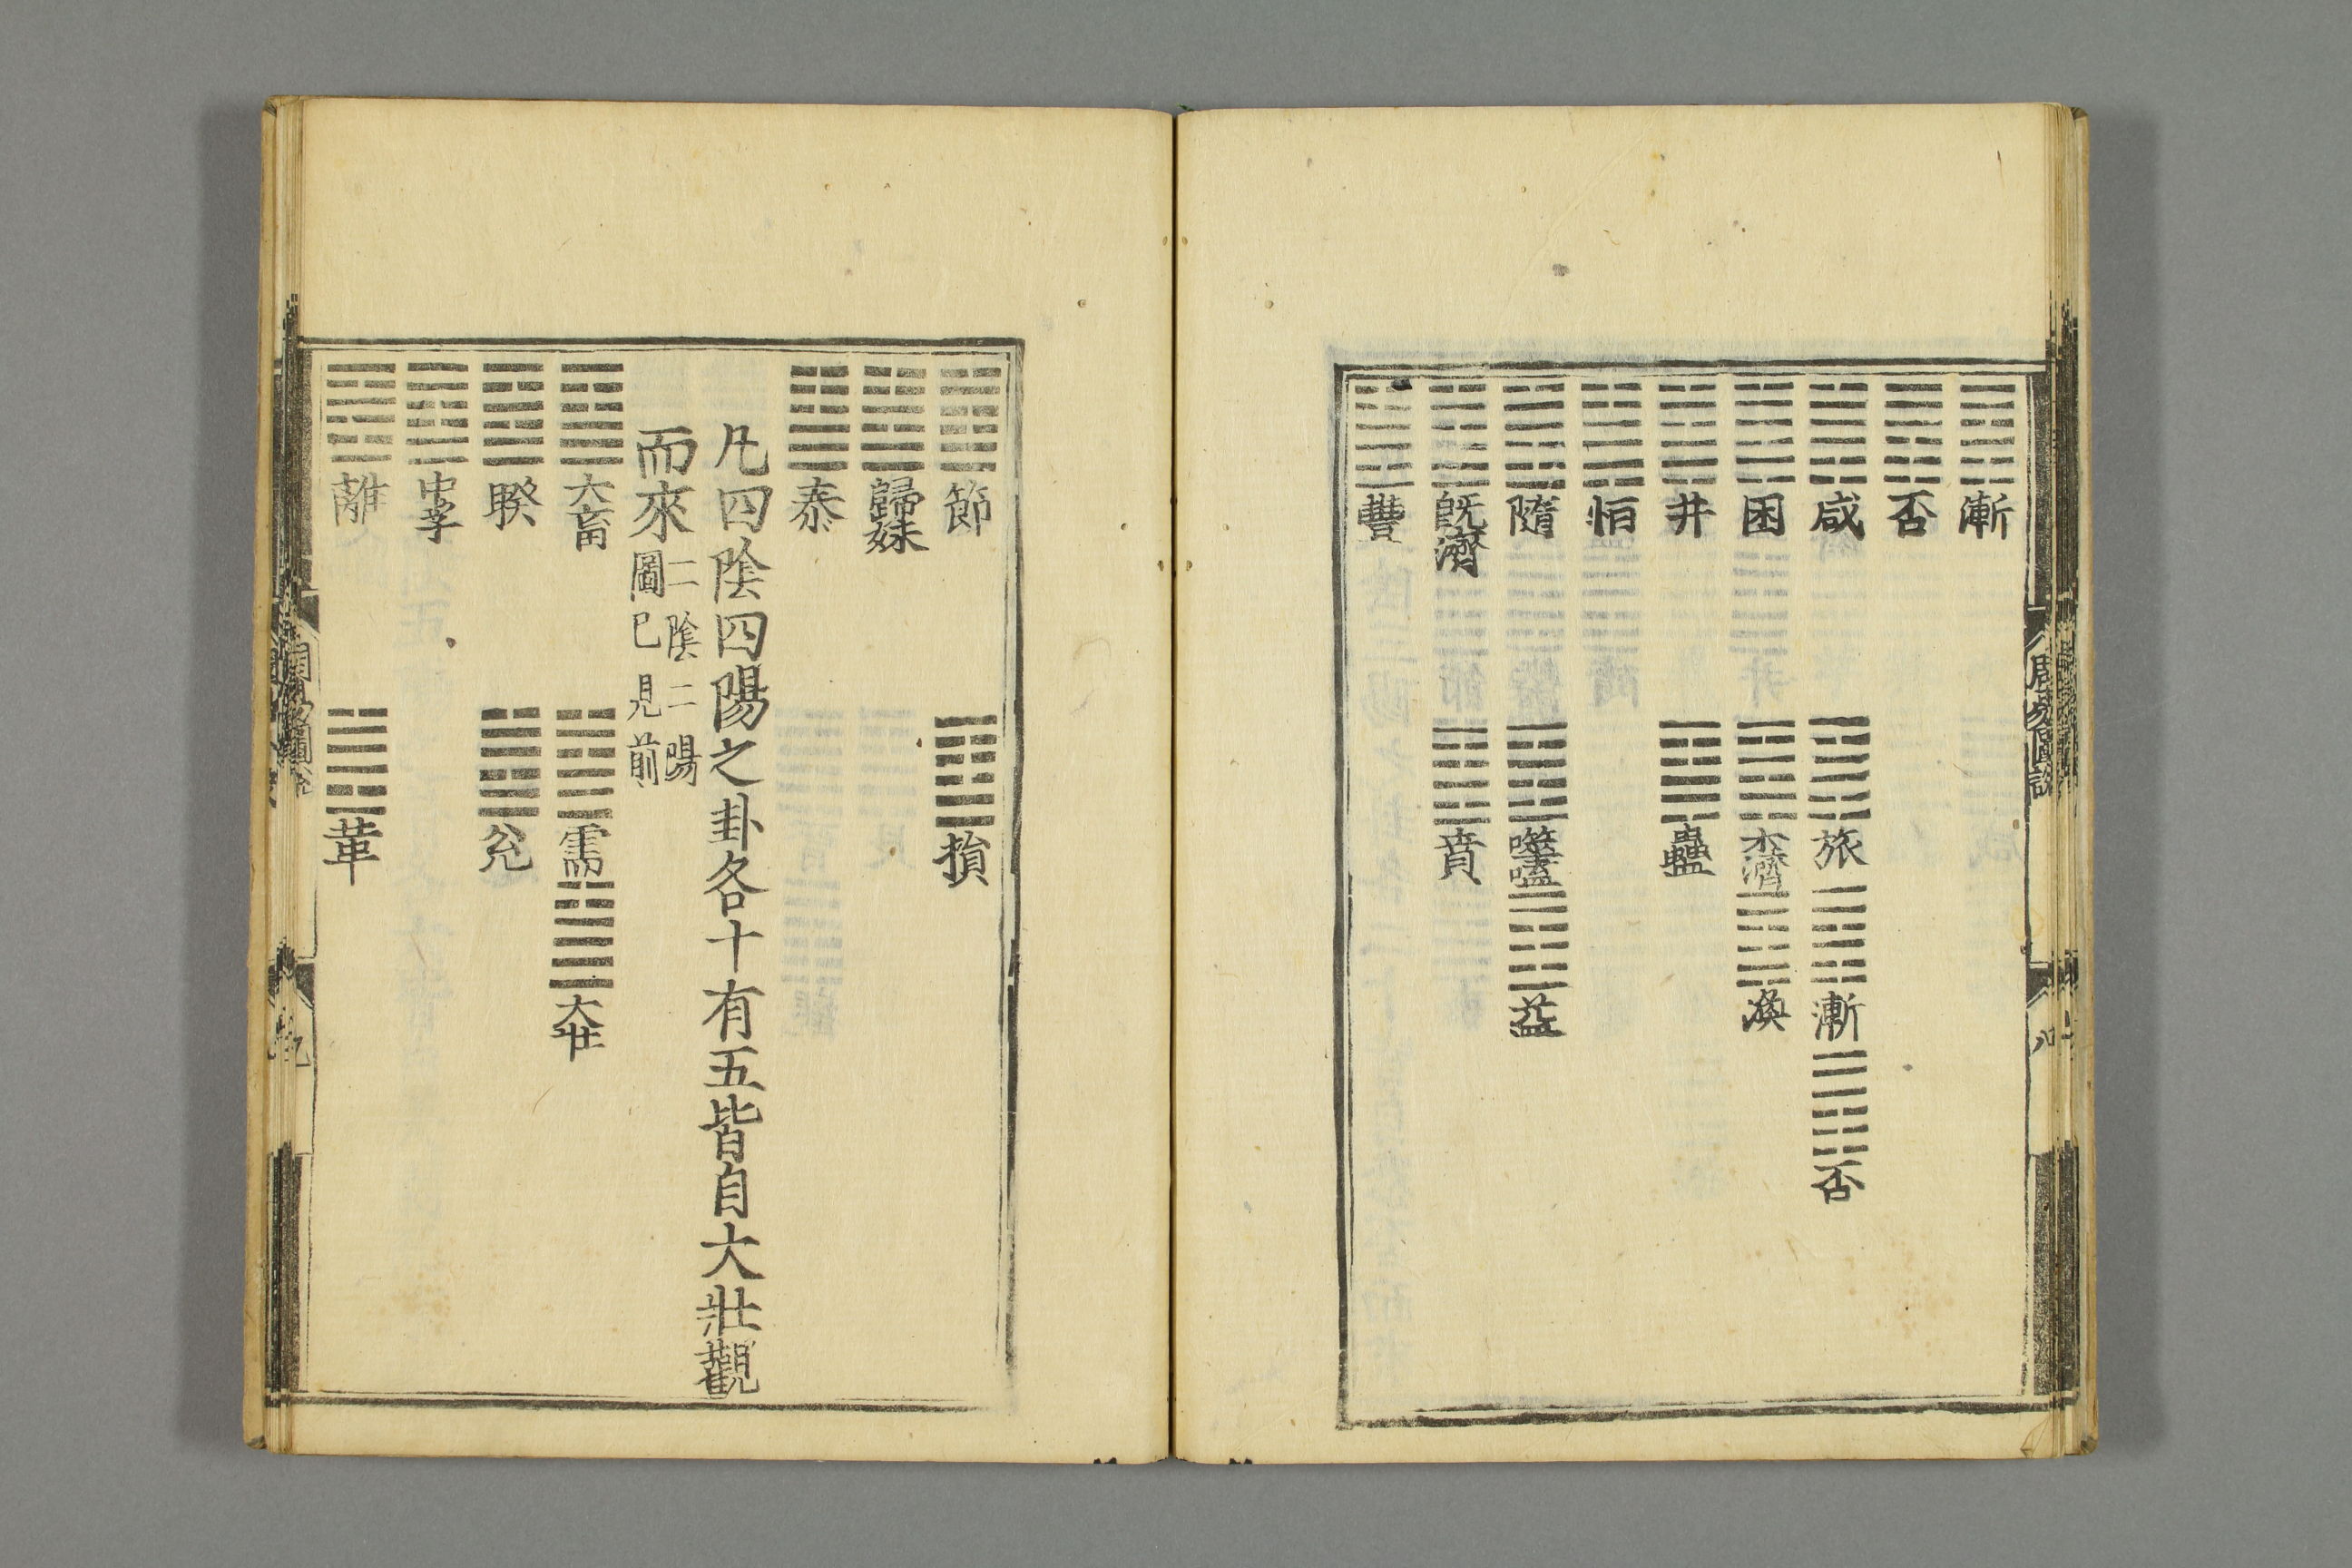 漸
否
咸 旅 漸 否
困 未濟 渙
井 蠱
恒
隨 噬嗑 益
旣濟 賁
豐
節 損
歸妹
泰
凡四陰四陽之卦各十有五皆自大壯觀
而來二陰二陽
圖已見前
大畜 需 大壯
睽 兌
中孚
離 革
周易圖說
八